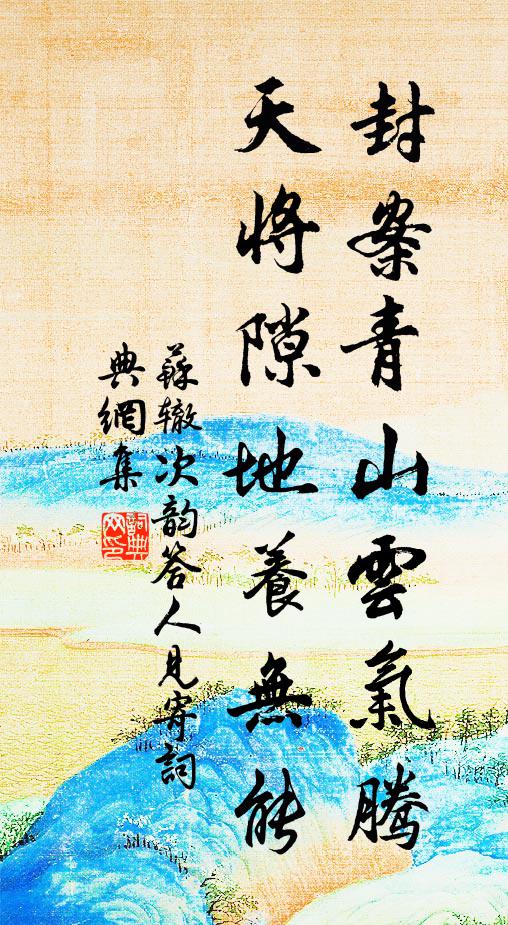 封案青山雲氣騰
天將隙地養無能
蘇辙次韵答人見寄詞
典網集
詞典
网印